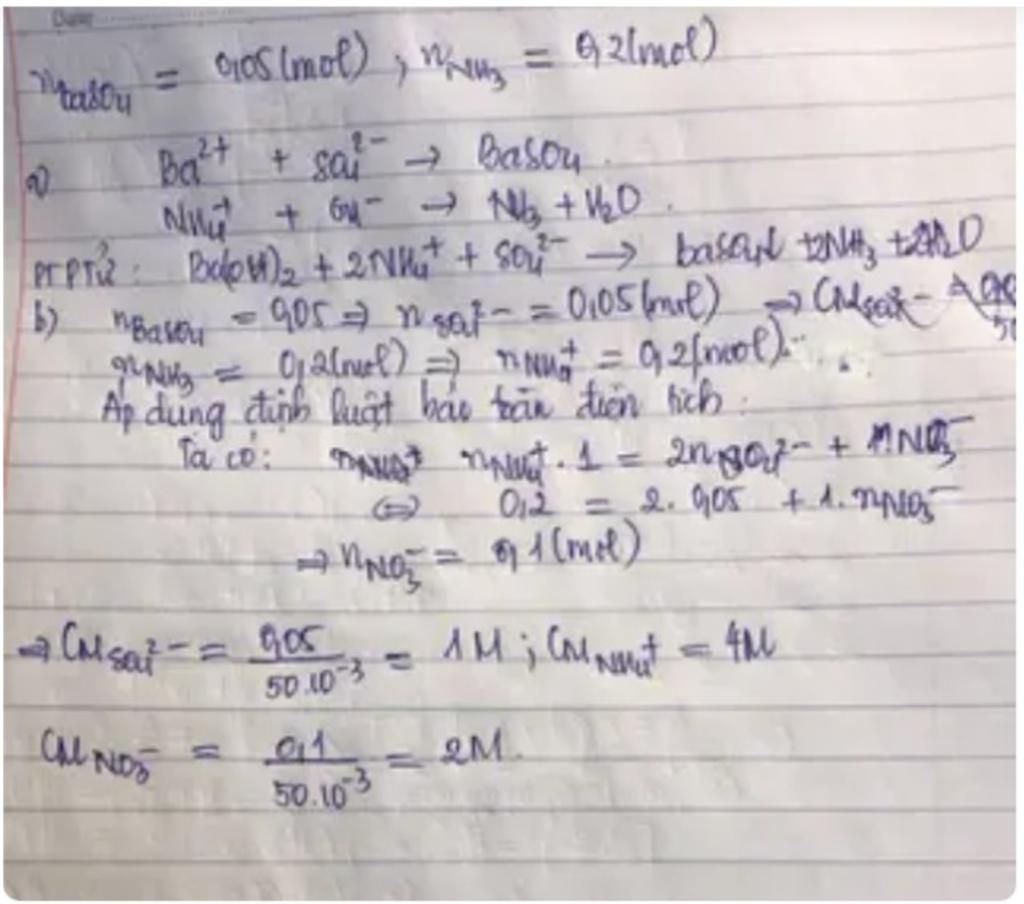 nBaSO4 = 0,05 (mol) ; nNH3 = 0,2 (mol)
a) Ba2+ + SO4^2- → BaSO4
NH4+ + OH- → NH3 + H2O.
PTPTử: Ba(OH)2 + 2NH4+ + SO4^2- → BaSO4↓ + 2NH3 + 2H2O
b) nBaSO4 = 0,05 ⇒ nSO4^2- = 0,05 (mol) ⇒ CM SO4^2-
nNH3 = 0,2 (mol) ⇒ nNH4+ = 0,2 (mol).
Áp dụng định luật bảo toàn điện tích:
Ta có: nNH4+ . 1 = 2nSO4^2- + 1.nNO3-
⇔ 0,2 = 2. 0,05 + 1. nNO3-
⇒ nNO3- = 0,1 (mol)
⇒ CM SO4^2- = 0,05 / 50.10^-3 = 1M ; CM NH4+ = 4M
CM NO3- = 0,1 / 50.10^-3 = 2M.